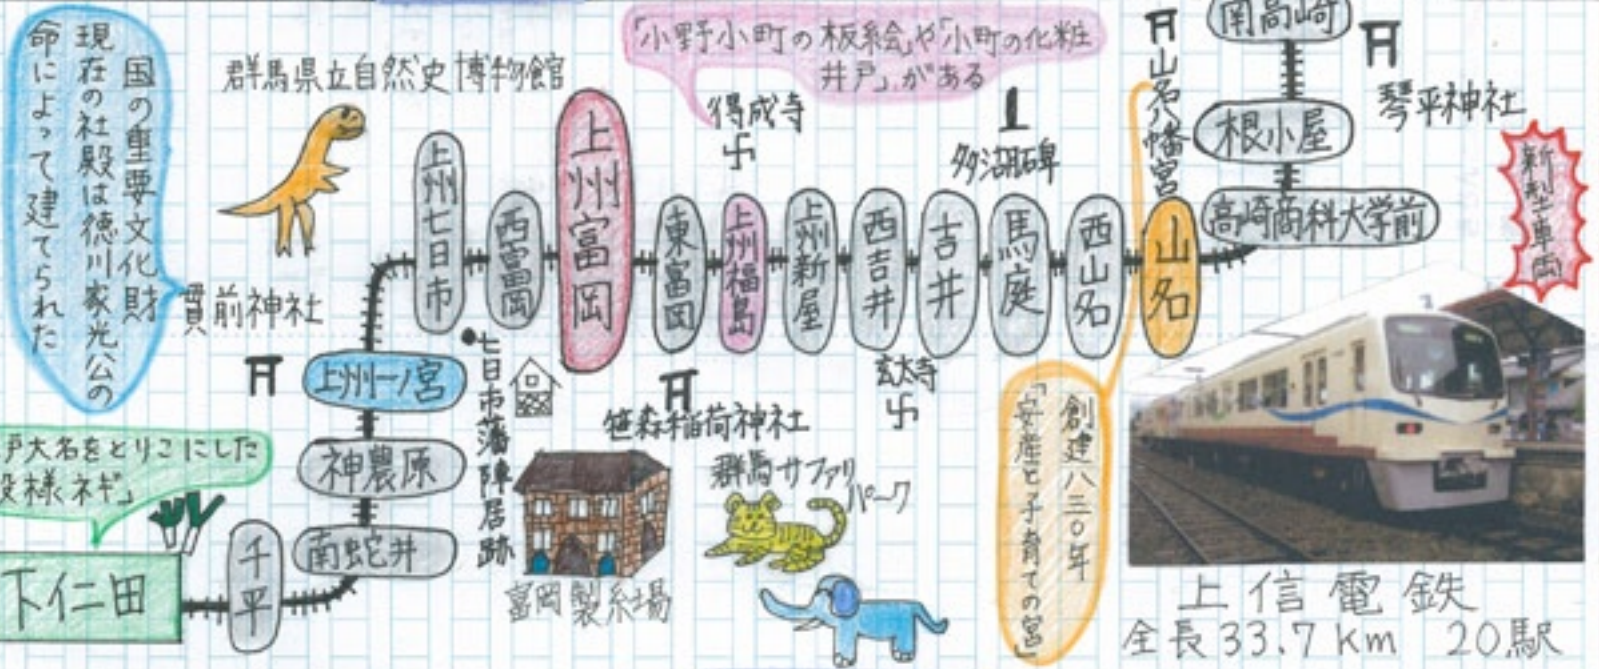 国の重要文化財
現在の社殿は徳川家光公の
命によって建てられた
群馬県立自然史博物館
「小野小町の板絵」や「小町の化粧
井戸」がある
得成寺
卍
多湖碑
山名八幡宮
南高崎
琴平神社
根小屋
高崎商科大学前
新型車両
上州七日市
西富岡
上州富岡
東富岡
上州福島
上州新屋
西吉井
吉井
馬庭
西山名
山名
貫前神社
上州一ノ宮
七日市藩陣屋跡
笹森稲荷神社
玄太寺
卍
創建八三〇年
「安産と子育ての宮」
戸大名をとりこにした
殿様ネギ」
神農原
群馬サファリ
パーク
南蛇井
千平
下仁田
富岡製糸場
上信電鉄
全長33.7km 20駅